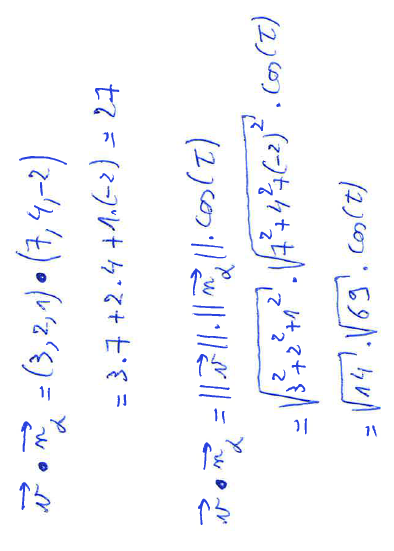 v⃗ • n⃗_α = (3,2,1) • (7,4,-2)
= 3.7+2.4+1.(-2) = 27
v⃗ • n⃗_α = ||v⃗||.||n⃗_α||.cos(τ)
= √(3²+2²+1²) . √(7²+4²+(-2)²) . cos(τ)
= √14 . √69 . cos(τ)